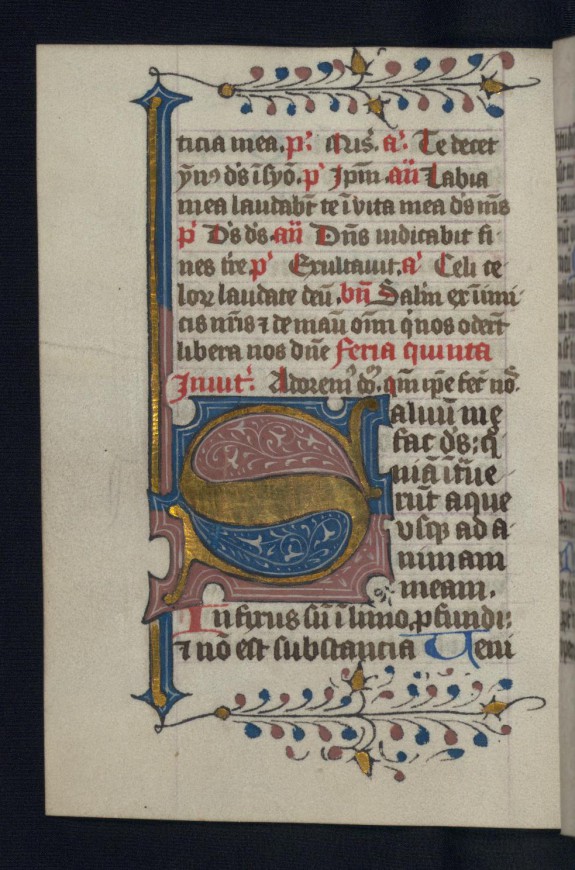 ticia mea. p̃: aris. a: Te decet
ẏmꝰ d̃s ı̃ sẏõ. p̃ Ip̃m. añ Labia
mea laudabt̃ te ı̃ vita mea d̃s m̃s
p̃ D̃s d̃s. añ D̃ns iudicabit fi
nes t̃re p̃ Exultauit. a̾ Celi ce
loꝝ laudate deũ. vñ Salũ ex inimi
cis nr̃is ⁊ de manũ oim̃ q̾ nos odert̃
libera nos dñe feria quinta
Inuit̾. Adorem̾ d̃o̾. qm̃ ip̃e fec̾ nõ.
Saluū me
fac d̃s: q̃
niā ı̃t̃ue
rūt aque
vsqꝫ ad a
nimam
meam.
Infixus sū ı̃ limo p̃fundi:
⁊ nō est substancia Veni